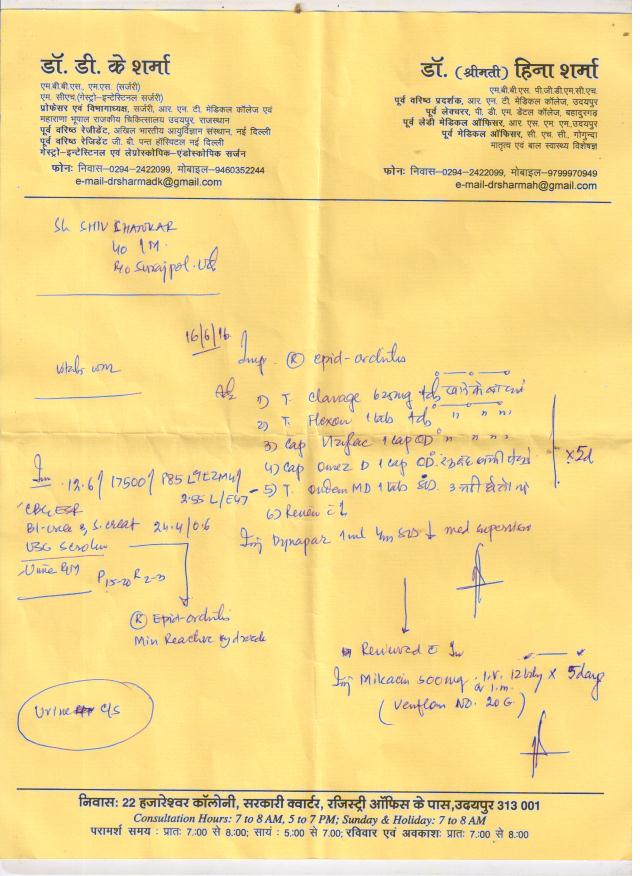 डॉ. डी. के शर्मा
एम.बी.बी.एस., एम.एस. (सर्जरी)
एम. सीएच.(गेस्ट्रो-इन्टेस्टिनल सर्जरी)
प्रोफेसर एवं विभागाध्यक्ष, सर्जरी, आर. एन. टी. मेडिकल कॉलेज एवं
महाराणा भूपाल राजकीय चिकित्सालय उदयपुर, राजस्थान
पूर्व वरिष्ठ रेजीडेंट, अखिल भारतीय आयुर्विज्ञान संस्थान, नई दिल्ली
पूर्व वरिष्ठ रेजिडेंट जी. बी. पन्त हॉस्पिटल नई दिल्ली
गेस्ट्रो-इन्टेस्टिनल एवं लेप्रोस्कोपिक-एंडोस्कोपिक सर्जन
फोनः निवास-0294-2422099, मोबाइल-9460352244
e-mail-drsharmadk@gmail.com
डॉ. (श्रीमती) हिना शर्मा
एम.बी.बी.एस. पी.जी.डी.एम.सी.एच.
पूर्व वरिष्ठ प्रदर्शक, आर. एन. टी. मेडिकल कॉलेज, उदयपुर
पूर्व लेक्चरर, पी. डी. एम. डेंटल कॉलेज, बहादुरगढ़
पूर्व लेडी मेडिकल ऑफिसर, आर. एस. एम. एम.उदयपुर
पूर्व मेडिकल ऑफिसर, सी. एच. सी., गोगुन्दा
मातृत्व एवं बाल स्वास्थ्य विशेषज्ञ
फोनः निवास-0294-2422099, मोबाइल-9799970949
e-mail-drsharmah@gmail.com
Sh SHIV SHANKAR
40 / M.
R/o Surajpol.
16/6/16
Imp. (R) epid-orchitis
Adv
1) T. Clavage 625mg tds खाने के बाद
2) T. Flexon 1 tab tds " " "
3) Cap 1 cap OD " " "
4) Cap Omez D 1 cap OD.
5) T. Ondem MD 1 tab
6) Review
x 5d
Inj Dynapar 1ml im sos ↓ med supervision
Inv 12.6 / 17500 / P85 L9 E2 M4 /
CBC, ESR
Bl-urea & S. creat 24.4 / 0.6
USG Scrotum
Urine R/M P 15-20 R 2-3
(R) Epid-orchitis
Min Reactive Hydrocele
Urine c/s
Reviewed c Inv
Inj Mikacin 500mg i.v. or i.m. 12 hrly x 5 days
(Venflon NO. 20G)
निवास: 22 हजारेश्वर कॉलोनी, सरकारी क्वार्टर, रजिस्ट्री ऑफिस के पास,उदयपुर 313 001
Consultation Hours: 7 to 8 AM, 5 to 7 PM; Sunday & Holiday: 7 to 8 AM
परामर्श समय : प्रातः 7.00 से 8.00; सायं : 5.00 से 7.00; रविवार एवं अवकाशः प्रातः 7.00 से 8.00